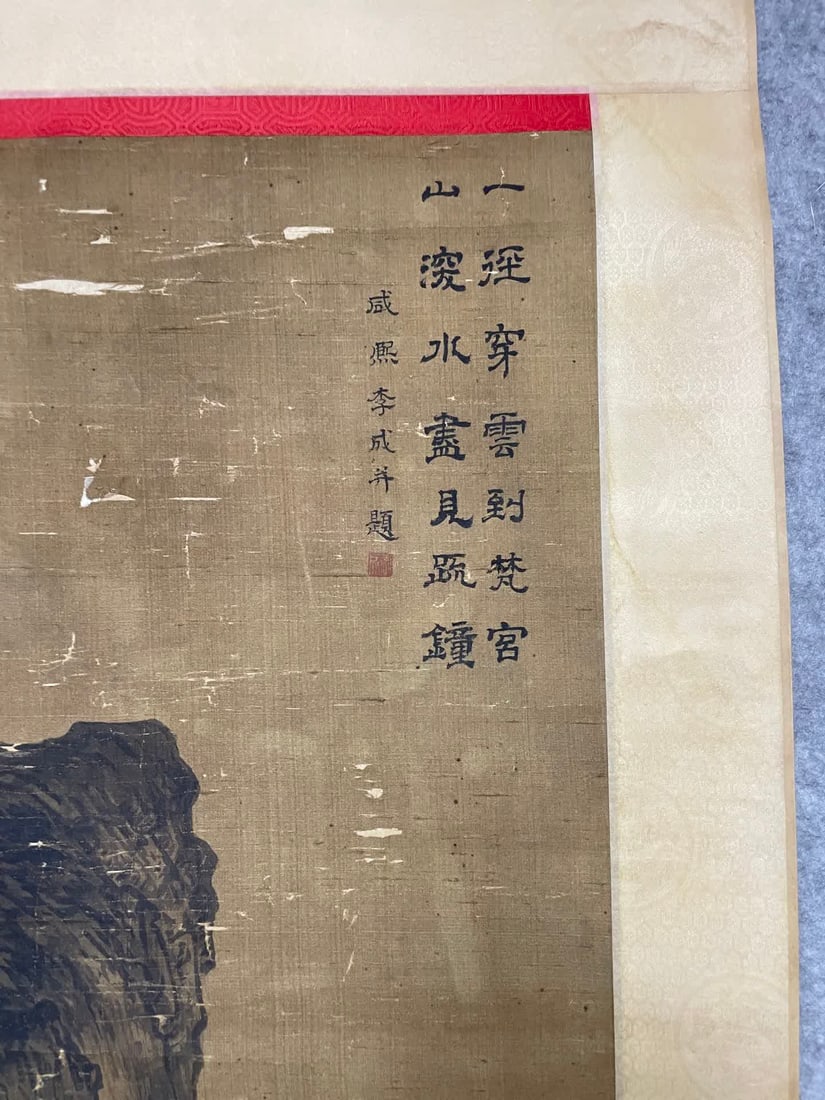 一徑穿雲到梵宮
山深水盡見疏鐘
咸熙李成并題